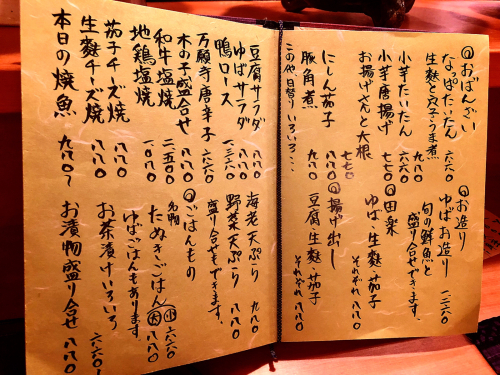 ◎おばんざい
なっぱたいたん 六六〇
生麩と茄子うま煮 九八〇
小芋たいたん 六六〇
小芋唐揚げ 七七〇
お揚げさんと大根 七七〇
にしん茄子 八八〇
豚角煮 九八〇
この他日替りいろいろ…
◎お造り
ゆばお造り 一二六〇
旬の鮮魚と
盛り合せできます。
◎田楽
ゆば・生麩・茄子
それぞれ 八八〇
◎揚げ出し
豆腐・生麩・茄子
それぞれ 八八〇
豆腐サラダ 八八〇
ゆばサラダ 八八〇
鴨ロース 一三二〇
万願寺唐辛子 六六〇
木の子盛合せ 八八〇
和牛塩焼 二五〇〇
地鶏塩焼 一〇八〇
茄子チーズ焼 八八〇
生麩チーズ焼 八八〇
本日の焼魚 九八〇〜
海老天ぷら 九八〇
野菜天ぷら 八八〇
盛り合せもできます。
◎ごはんもの
名物
たぬきごはん 小 六六〇
大 八八〇
ゆばごはんもあります
お茶漬けいろいろ 六六〇〜
お漬物盛り合せ 八八〇